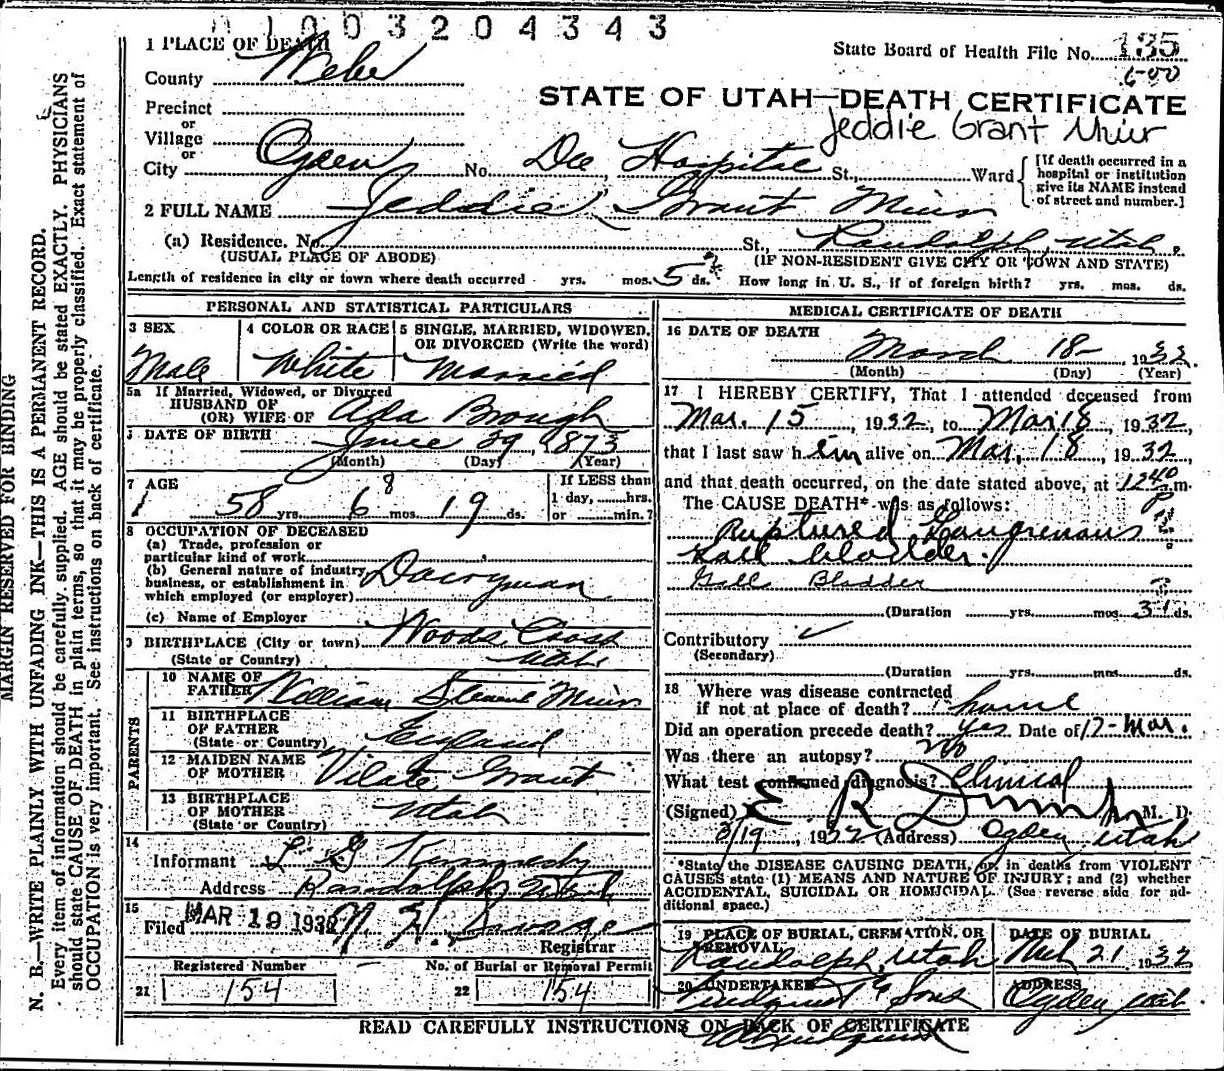 0 1 0 0 3 2 0 4 3 4 3
1 PLACE OF DEATH
State Board of Health File No. 135
600
County Weber
STATE OF UTAH—DEATH CERTIFICATE
Precinct
Jeddie Grant Muir
or
Village
or
City Ogden No. Dee Hospital St., Ward
[If death occurred in a
hospital or institution
give its NAME instead
of street and number.]
2 FULL NAME Jeddie Grant Muir
(a) Residence. No. St., Randolph, Utah.
(USUAL PLACE OF ABODE) (IF NON-RESIDENT GIVE CITY OR TOWN AND STATE)
Length of residence in city or town where death occurred yrs. mos. 5 ds. How long in U. S., if of foreign birth? yrs. mos. ds.
PERSONAL AND STATISTICAL PARTICULARS
3 SEX
Male
4 COLOR OR RACE
White
5 SINGLE, MARRIED, WIDOWED,
OR DIVORCED (Write the word)
Married
5a If Married, Widowed, or Divorced
HUSBAND OF
(OR) WIFE OF Ada Brough
DATE OF BIRTH June 29, 1873
(Month) (Day) (Year)
7 AGE
58 yrs. 6 8 mos. 19 ds.
If LESS than
1 day, hrs.
or min.?
8 OCCUPATION OF DECEASED
(a) Trade, profession or
particular kind of work
(b) General nature of industry,
business, or establishment in
which employed (or employer) Dairyman
(c) Name of Employer
9 BIRTHPLACE (City or town) Woods Cross
(State or Country) Utah
PARENTS
10 NAME OF
FATHER William Muir
11 BIRTHPLACE
OF FATHER
(State or Country) England
12 MAIDEN NAME
OF MOTHER Vilate Grant
13 BIRTHPLACE
OF MOTHER
(State or Country) Utah
14
Informant L. G. Kennedy
Address Randolph, Utah
15
Filed MAR 19 1932 Savage
Registrar
Registered Number No. of Burial or Removal Permit
21 154 22 154
MEDICAL CERTIFICATE OF DEATH
16 DATE OF DEATH
March 18- 1932
(Month) (Day) (Year)
17 I HEREBY CERTIFY, That I attended deceased from
Mar. 15, 1932, to Mar 18, 1932,
that I last saw him alive on Mar. 18, 1932,
and that death occurred, on the date stated above, at 1240 P m.
The CAUSE DEATH* was as follows:
Ruptured Gangrenous ?
Gall bladder.
Gall Bladder ?
(Duration yrs. mos. 31 ds.
Contributory ✓
(Secondary)
(Duration yrs. mos. ds.
18 Where was disease contracted
if not at place of death? home
Did an operation precede death? Yes Date of 17-Mar.
Was there an autopsy? No
What test confirmed diagnosis? Clinical
(Signed) E R Dumke M. D.
3/19, 1932 (Address) Ogden, Utah
*State the DISEASE CAUSING DEATH, or, in deaths from VIOLENT
CAUSES state (1) MEANS AND NATURE OF INJURY; and (2) whether
ACCIDENTAL, SUICIDAL OR HOMICIDAL. (See reverse side for ad-
ditional space.)
19 PLACE OF BURIAL, CREMATION, OR
REMOVAL
Randolph, Utah
DATE OF BURIAL
Mch 21 1932
20 UNDERTAKER
Lindquist & Sons
ADDRESS
Ogden Utah
READ CAREFULLY INSTRUCTIONS ON BACK OF CERTIFICATE
MARGIN RESERVED FOR BINDING
N. B.—WRITE PLAINLY WITH UNFADING INK—THIS IS A PERMANENT RECORD.
Every item of information should be carefully supplied. AGE should be stated EXACTLY. PHYSICIANS
should state CAUSE OF DEATH in plain terms, so that it may be properly classified. Exact statement of
OCCUPATION is very important. See instructions on back of certificate.